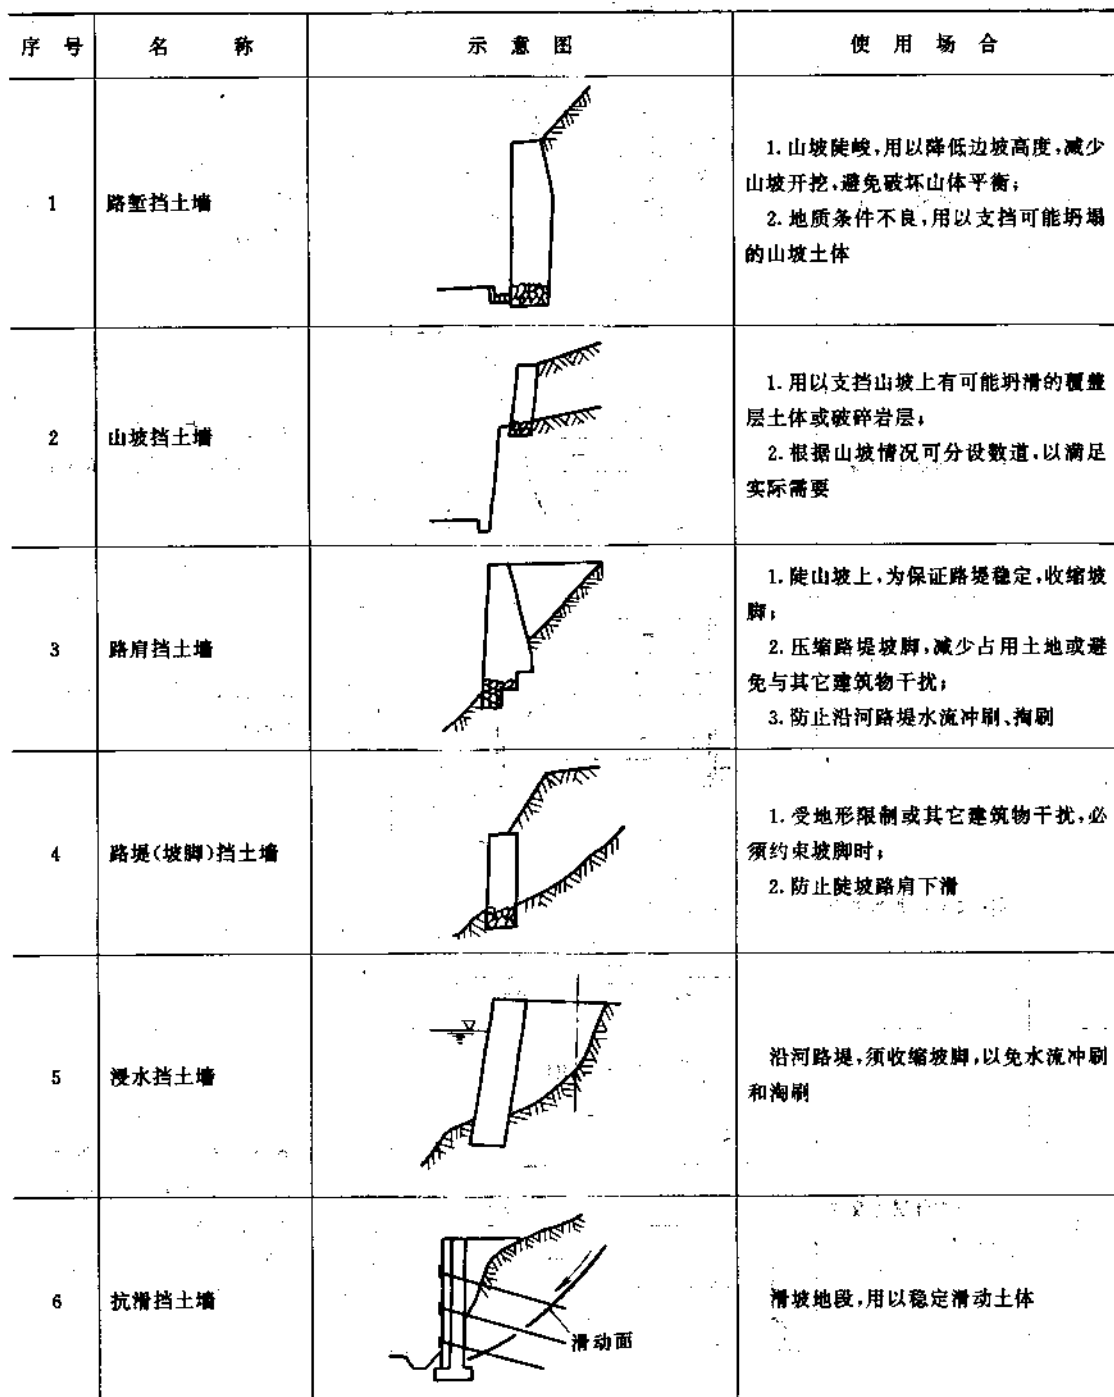 序 号 名 称 示 意 图 使 用 场 合
1 路堑挡土墙
1. 山坡陡峻,用以降低边坡高度,减少
山坡开挖,避免破坏山体平衡;
2. 地质条件不良,用以支挡可能坍塌
的山坡土体
2 山坡挡土墙
1. 用以支挡山坡上有可能坍滑的覆盖
层土体或破碎岩层;
2. 根据山坡情况可分设数道,以满足
实际需要
3 路肩挡土墙
1. 陡山坡上,为保证路堤稳定,收缩坡
脚;
2. 压缩路堤坡脚,减少占用土地或避
免与其它建筑物干扰;
3. 防止沿河路堤水流冲刷、掏刷
4 路堤(坡脚)挡土墙
1. 受地形限制或其它建筑物干扰,必
须约束坡脚时;
2. 防止陡坡路肩下滑
5 浸水挡土墙
沿河路堤,须收缩坡脚,以免水流冲刷
和淘刷
6 抗滑挡土墙
滑动面
滑坡地段,用以稳定滑动土体